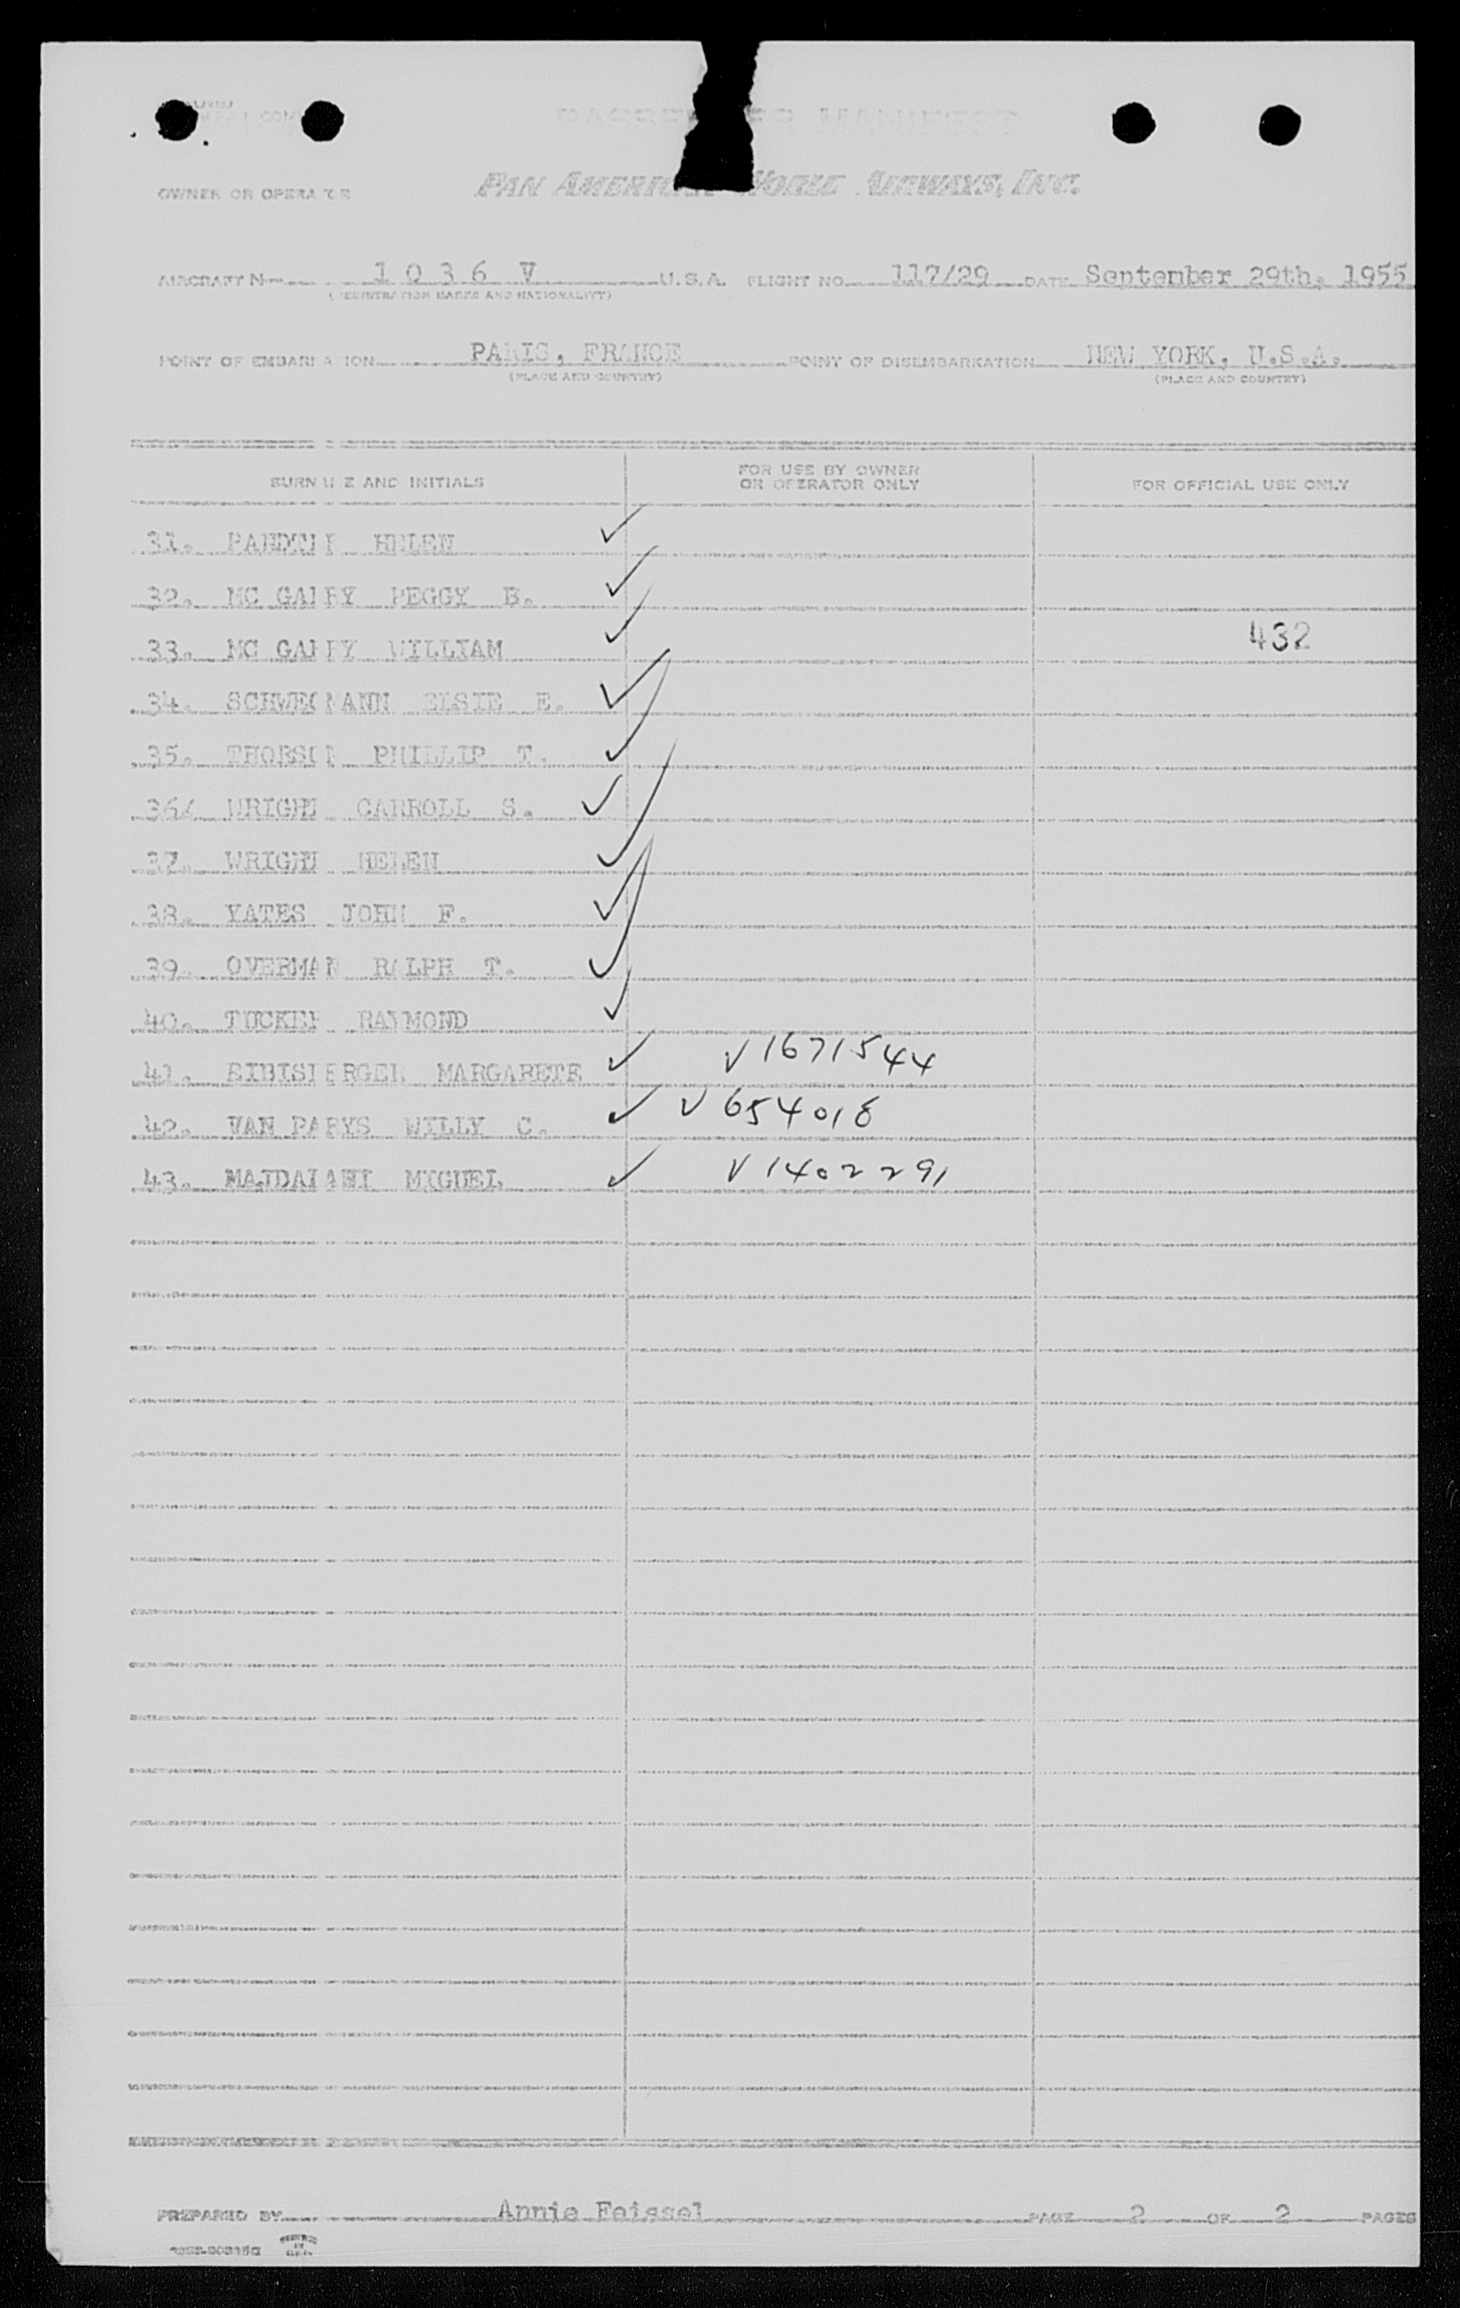 PASSENGER MANIFEST
OWNER OR OPERATOR PAN AMERICAN WORLD AIRWAYS, INC.
AIRCRAFT N 1 0 3 6 V U.S.A. FLIGHT NO. 117/29 DATE September 29th, 1955
(REGISTRATION MARKS AND NATIONALITY)
POINT OF EMBARKATION PARIS, FRANCE POINT OF DISEMBARKATION NEW YORK, U.S.A.
(PLACE AND COUNTRY) (PLACE AND COUNTRY)
SURNAME AND INITIALS FOR USE BY OWNER OR OPERATOR ONLY FOR OFFICIAL USE ONLY
31. HELEN ✓
32. MC PEGGY B. ✓
33. MC WILLIAM ✓ 432
34. SCHWEGMANN ELSIE E. ✓
35. PHILLIP T. ✓
36/ WRIGHT CARROLL S. ✓
37. WRIGHT HELEN ✓
38. YATES JOHN F. ✓
39. OVERMAN RALPH T. ✓
40. TUCKER RAYMOND ✓
41. MARGARETE ✓ V 1671544
42. VAN PARYS WILLY C. ✓ V 654018
43. MAJDALANI MIGUEL ✓ V 1402291
PREPARED BY Annie Feissel PAGE 2 OF 2 PAGES